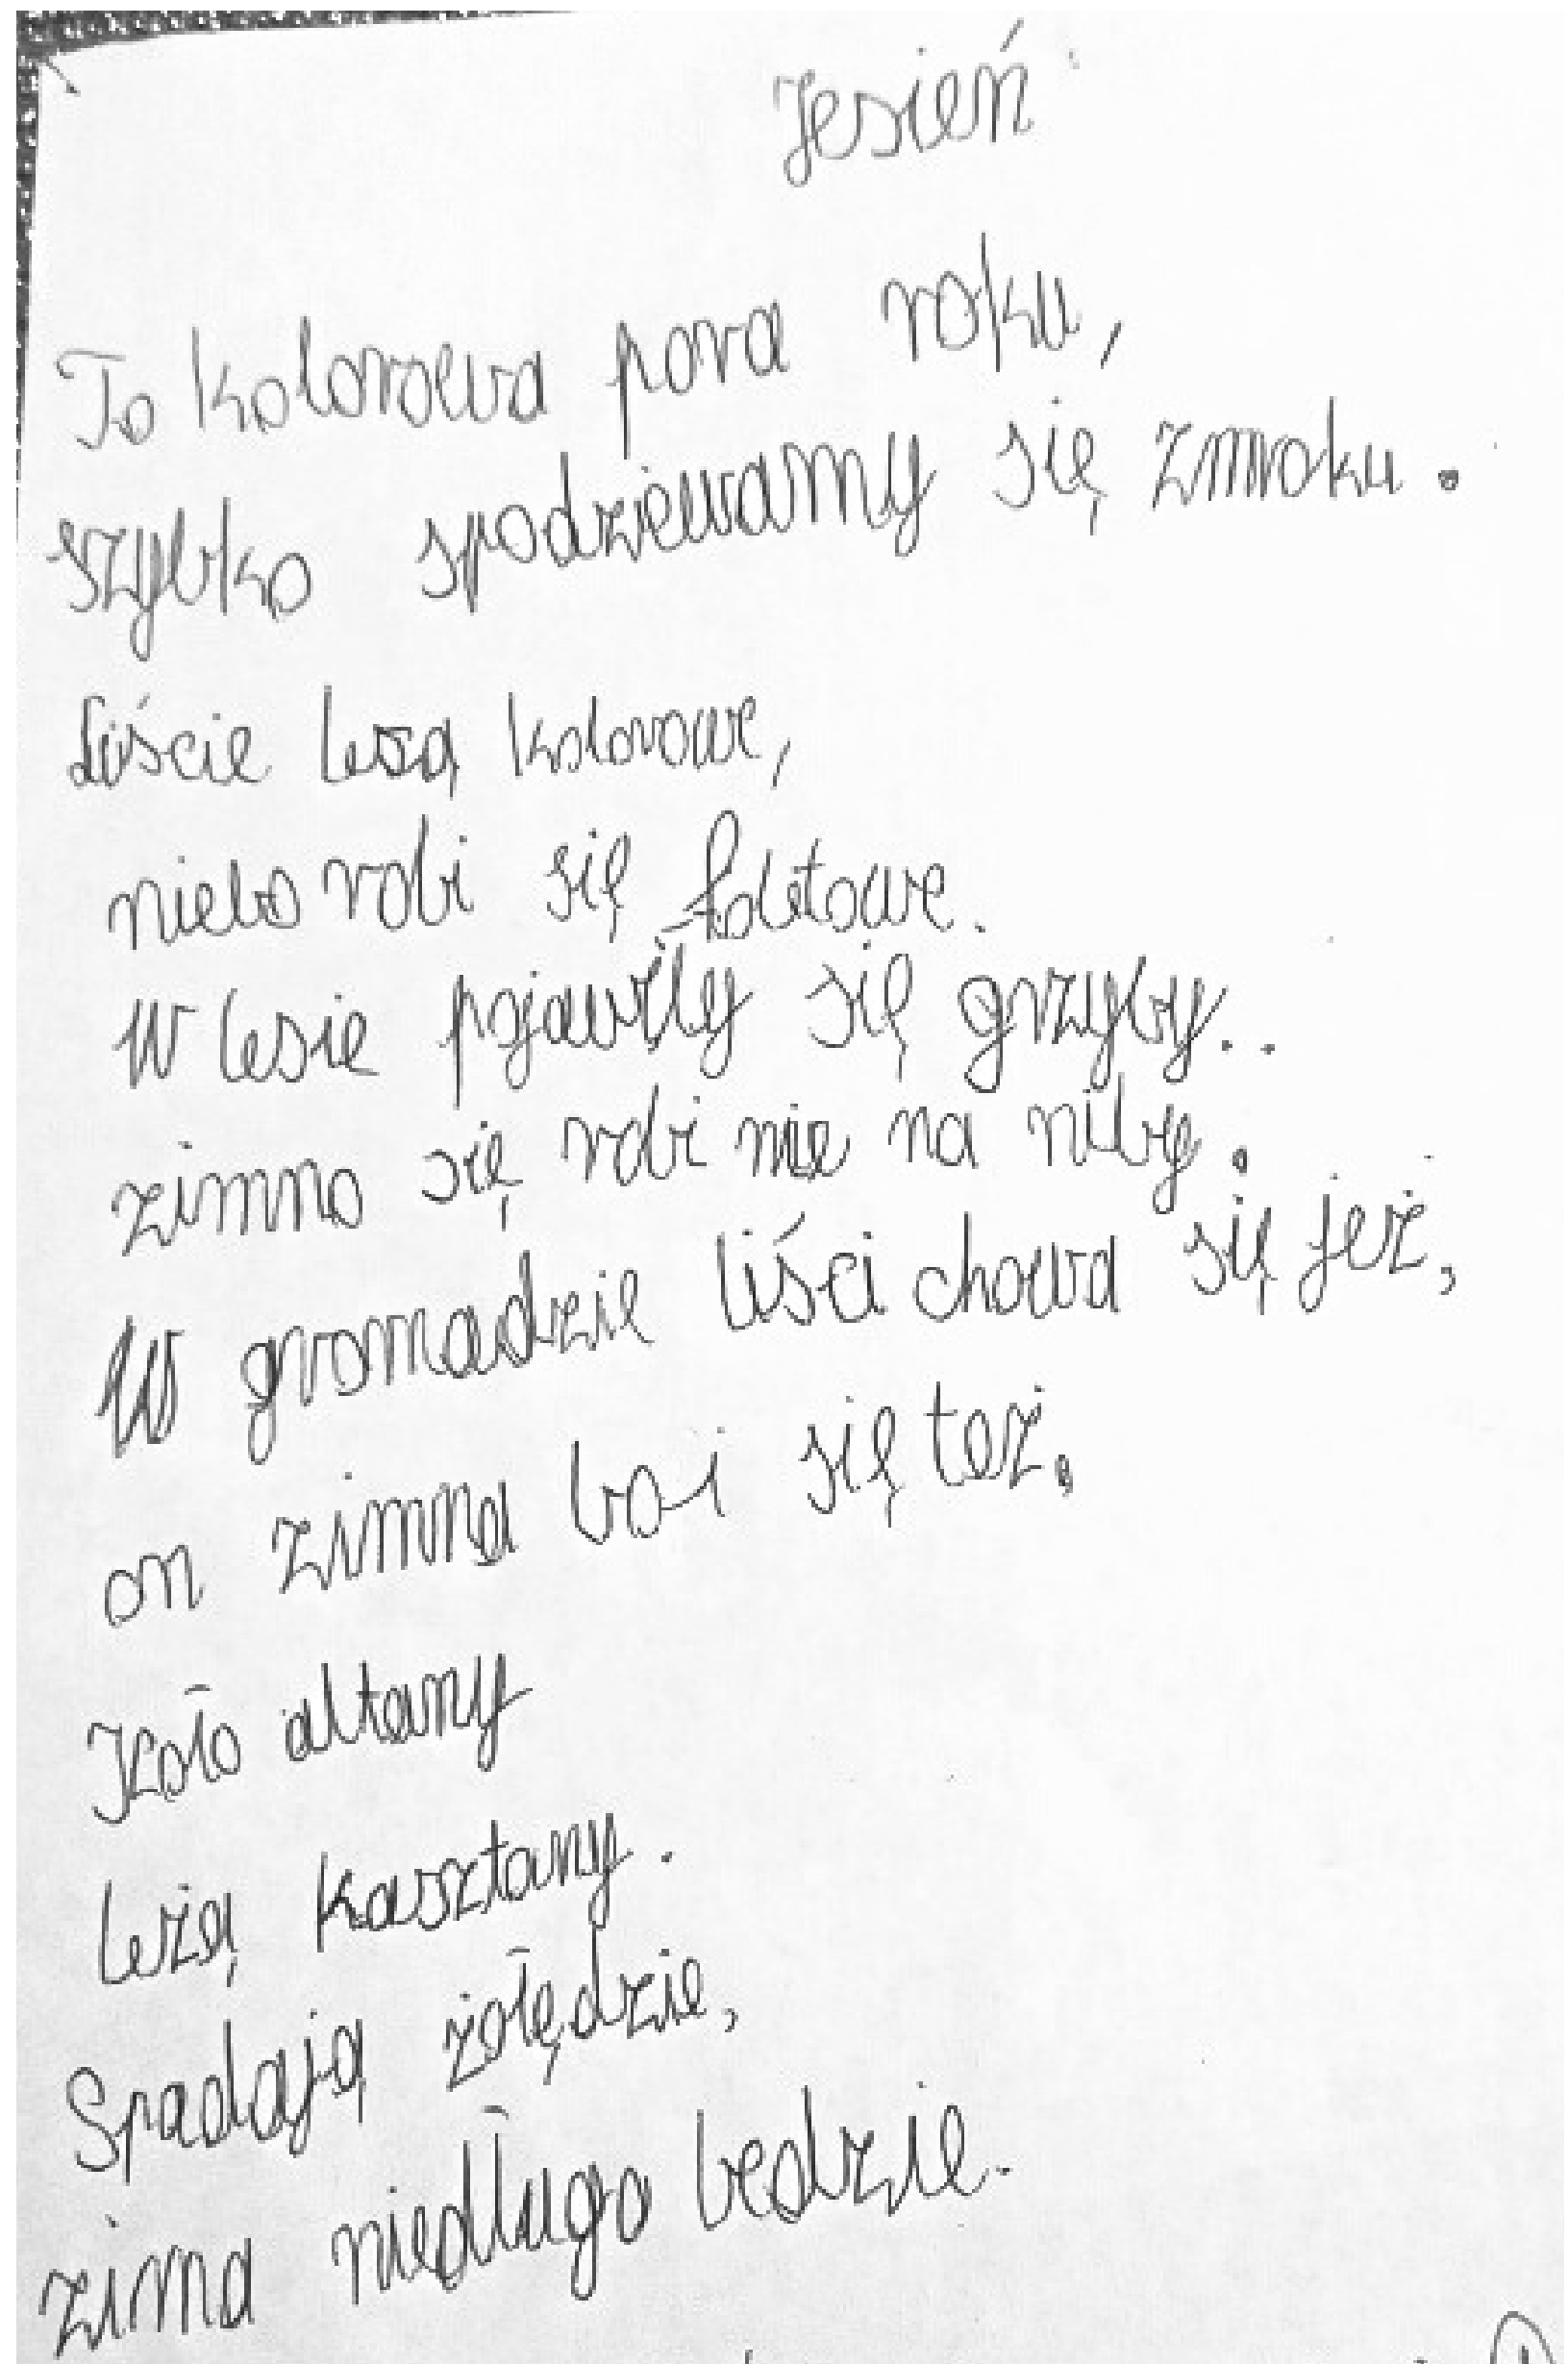 Jesień
To kolorowa pora roku,
szybko spodziewamy się zmroku.
Liście lezą kolorowe,
niebo robi się foletowe.
W lesie pojawiły się grzyby..
zimno się robi nie na niby.
W gromadzie liści chowa się jeż,
on zimna boi się też.
Koło altany
leżą kasztany.
Spadają żołędzie,
zima niedługo bedzie.